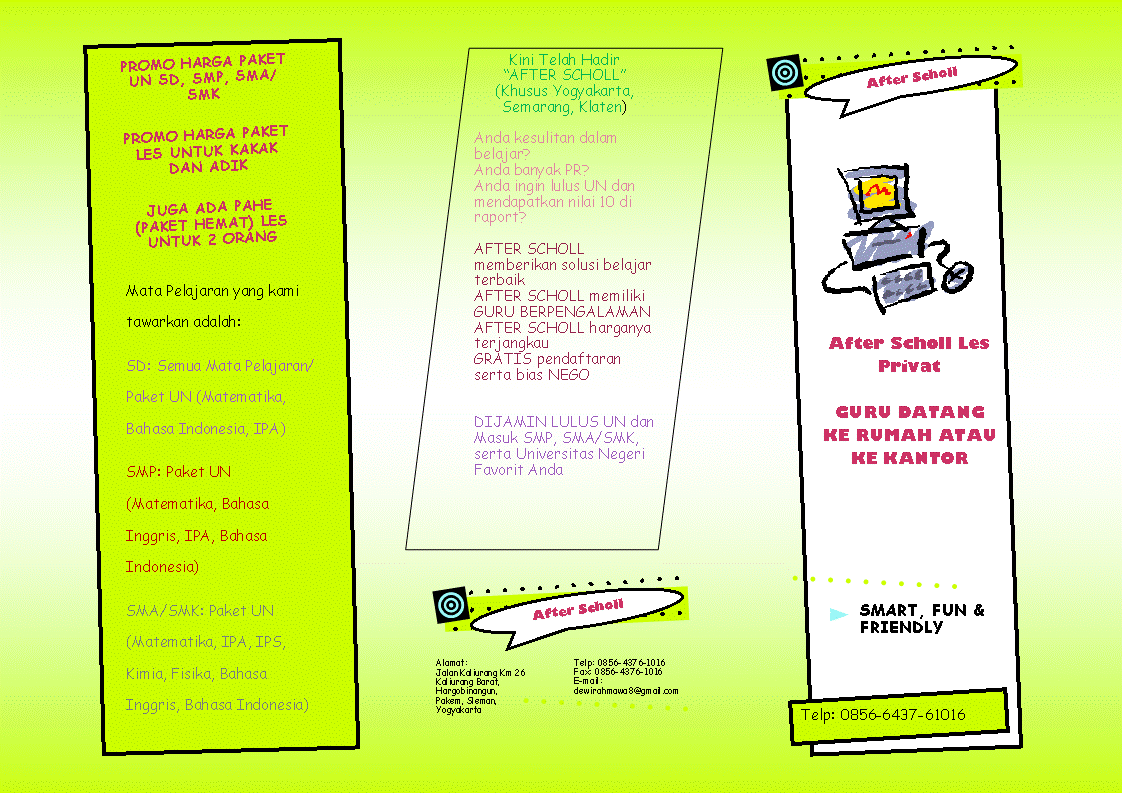 PROMO HARGA PAKET
UN SD, SMP, SMA/
SMK
PROMO HARGA PAKET
LES UNTUK KAKAK
DAN ADIK
JUGA ADA PAHE
(PAKET HEMAT) LES
UNTUK 2 ORANG
Mata Pelajaran yang kami
tawarkan adalah:
SD: Semua Mata Pelajaran/
Paket UN (Matematika,
Bahasa Indonesia, IPA)
SMP: Paket UN
(Matematika, Bahasa
Inggris, IPA, Bahasa
Indonesia)
SMA/SMK: Paket UN
(Matematika, IPA, IPS,
Kimia, Fisika, Bahasa
Inggris, Bahasa Indonesia)
Kini Telah Hadir
“AFTER SCHOLL”
(Khusus Yogyakarta,
Semarang, Klaten)
Anda kesulitan dalam
belajar?
Anda banyak PR?
Anda ingin lulus UN dan
mendapatkan nilai 10 di
raport?
AFTER SCHOLL
memberikan solusi belajar
terbaik
AFTER SCHOLL memiliki
GURU BERPENGALAMAN
AFTER SCHOLL harganya
terjangkau
GRATIS pendaftaran
serta bias NEGO
DIJAMIN LULUS UN dan
Masuk SMP, SMA/SMK,
serta Universitas Negeri
Favorit Anda
After Scholl
Alamat:
Jalan Kaliurang Km 26
Kaliurang Barat,
Hargobinangun,
Pakem, Sleman,
Yogyakarta
Telp: 0856-4376-1016
Fax: 0856-4376-1016
E-mail:
dewirahmawa8@gmail.com
After Scholl
After Scholl Les
Privat
GURU DATANG
KE RUMAH ATAU
KE KANTOR
SMART, FUN &
FRIENDLY
Telp: 0856-6437-61016